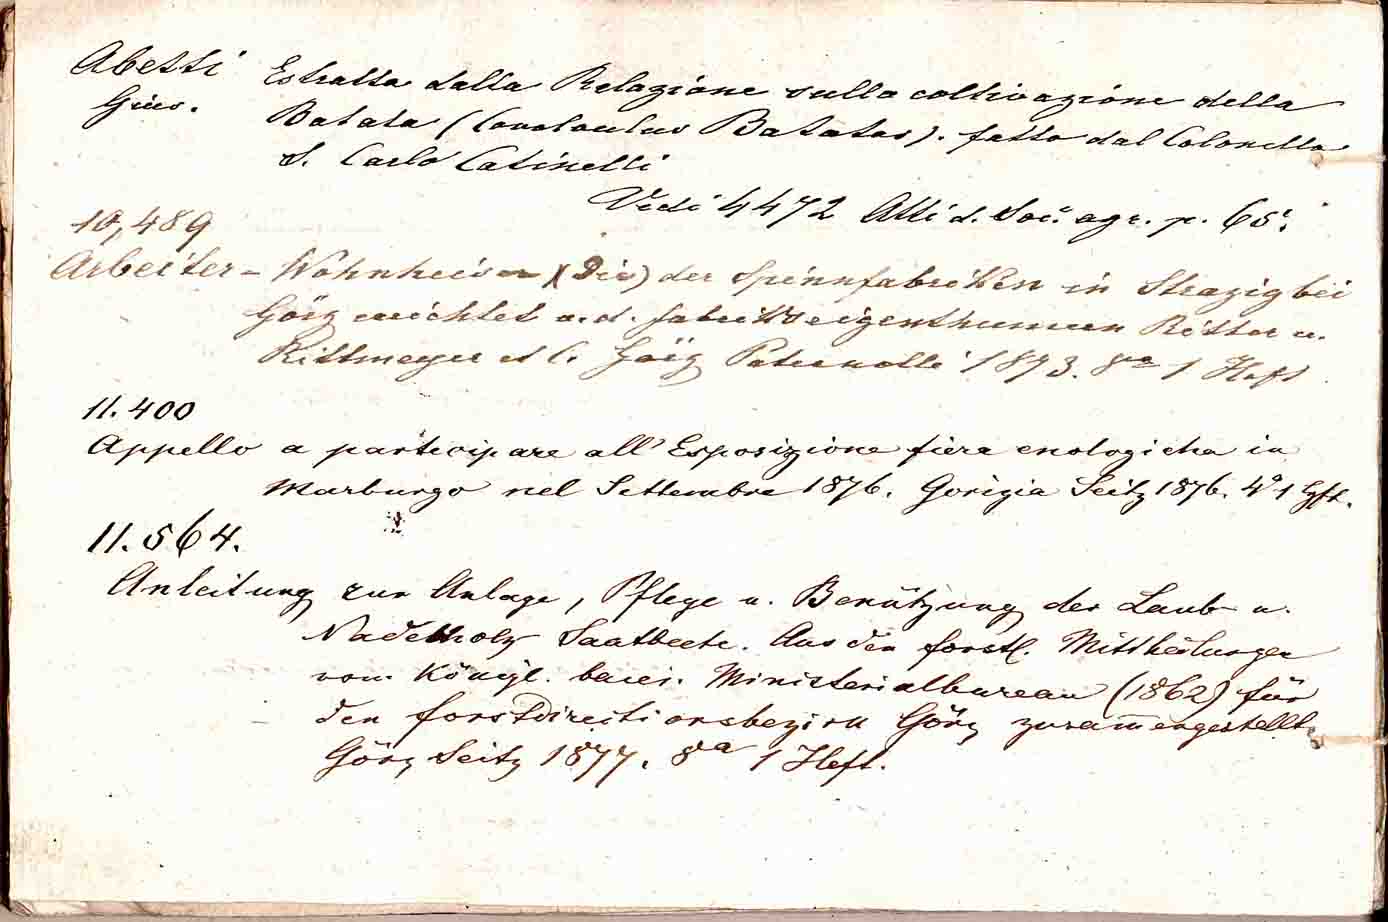 Abetti Estratto dalla Relazione sulla coltivazione della
Gius. Batata (Convolvulus Batatas). fatta dal Colonello
S. Carlo Catinelli
Vedi 4472 Atti d. Soc. agr. p. 65.
10,489
Arbeiter-Wohnheiser (Die) der Spinnfabriken in Strazig bei
Görz errichtet v. d. Fabrikseigenthumern Ritter u.
Rittmeyer et C. Görz Paternolli 1873. 8va 1 Heft
11.400
Appello a participare all'Esposizione fiera enologicha in
Marburgo nel Settembre 1876. Gorizia Seitz 1876. 4o 1 Hft.
11.564.
Anleitung zur Anlage, Pflege u. Benützung der Laub- u.
Nadelholz Saatbeete. Aus den forstl. Mittheilungen
vom Königl. baier. Ministerialbureau (1862) für
den Forstdirectionsbezirk Görz zusam̄engestellt.
Görz Seitz 1877. 8va 1 Heft.